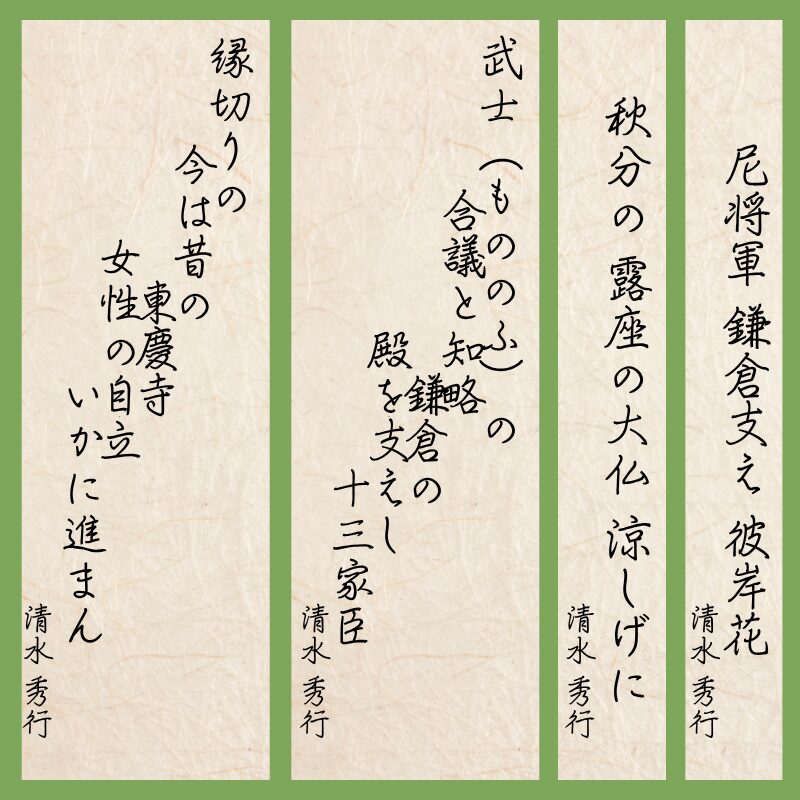 尼将軍 鎌倉支え 彼岸花
清水 秀行
秋分の 露座の大仏 涼しげに
清水 秀行
武士（もののふ）の
合議と知略
鎌倉の
殿を支えし
十三家臣
清水 秀行
縁切りの
今は昔の
東慶寺
女性の自立
いかに進まん
清水 秀行